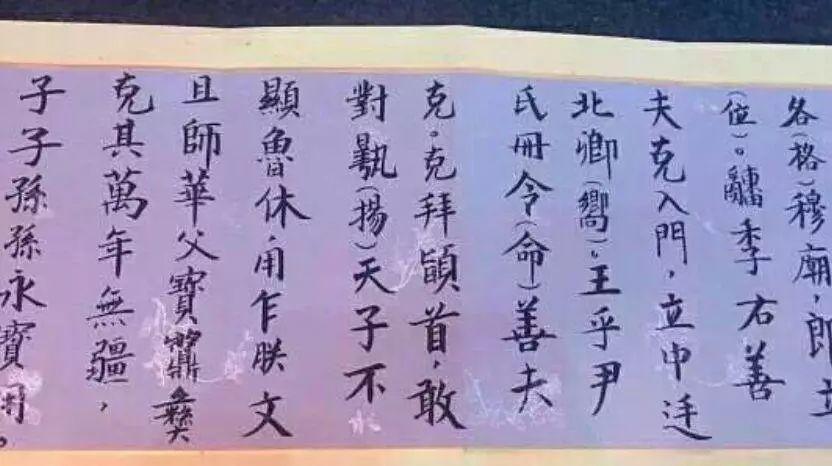 各(格)穆廟,即立
(位)。季右善
夫克入門,立中廷
北卿(嚮)。王乎尹
氏冊令(命)善夫
克。克拜䭫首,敢
對(揚)天子不
顯魯休用乍朕文
且師華父寶䵼彝
克其萬年無疆,
子子孫孫永寶用。